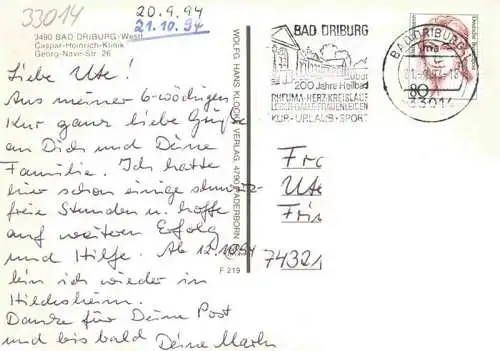 33014
20.9.94
21.10.94
3490 BAD DRIBURG/Westf.
Caspar-Heinrich-Klinik
Georg-Nave-Str. 26
Liebe Ute!
Aus meiner 6-wöchigen
Kur ganz liebe Grüße
an Dich und Deine
Familie. Ich hatte
hier schon einige schmerz-
freie Stunden u. hoffe
auf weiteren Erfolg
und Hilfe. Ab 12.10.94
bin ich wieder in
Hildesheim.
Danke für Deine Post
und bis bald Deine
WOLFG. HANS KLOCKE VERLAG, 4790 PADERBORN
F 219
BAD DRIBURG
200 Jahre Heilbad
RHEUMA-HERZ-KREISLAUF
KUR-URLAUB-SPORT
BAD DRIBURG 1
33014
80
Fra
Ute
74321